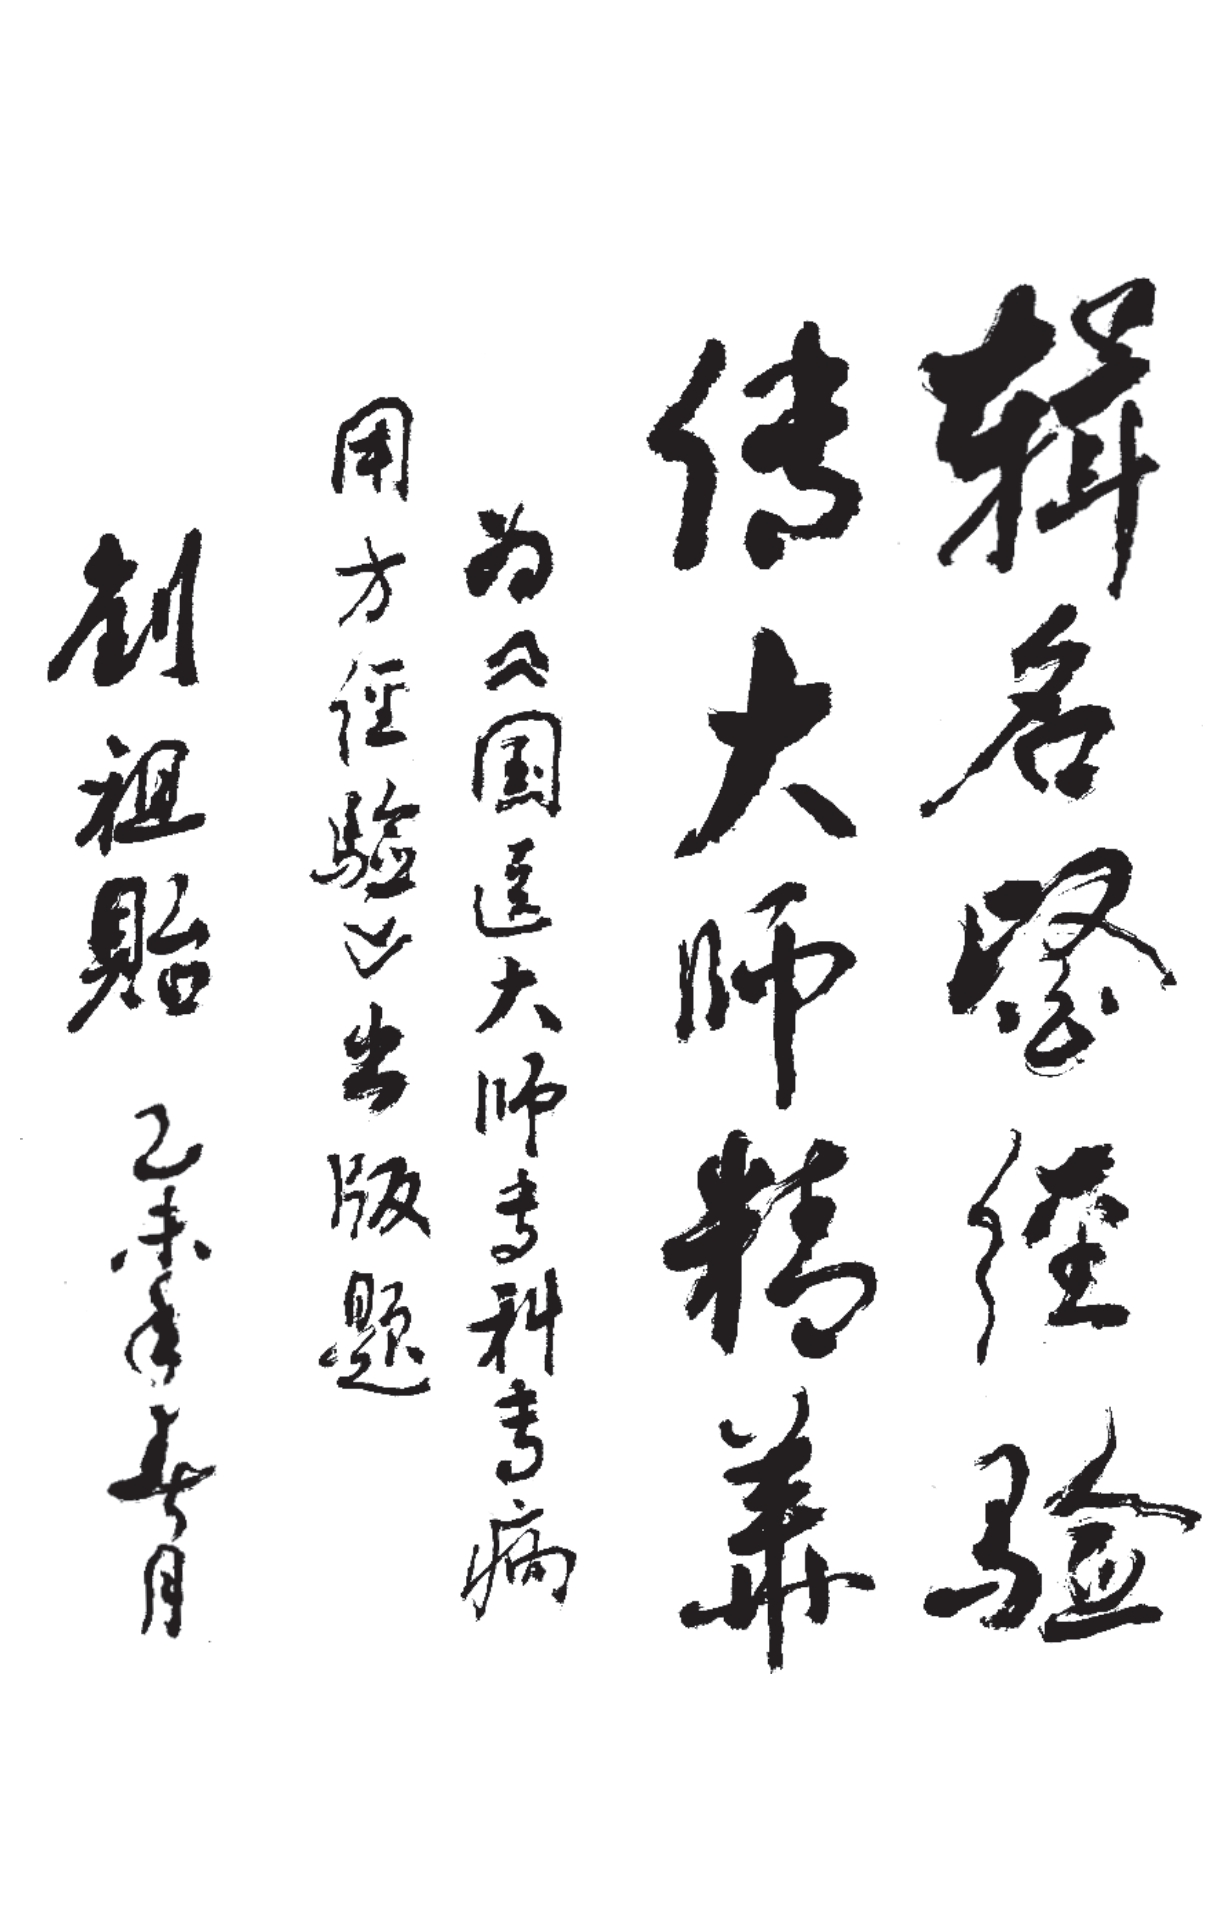 辑名醫经验
传大师精華
为《国医大师专科专病
用方经驗》出版题
刘祖贻 乙未年春月